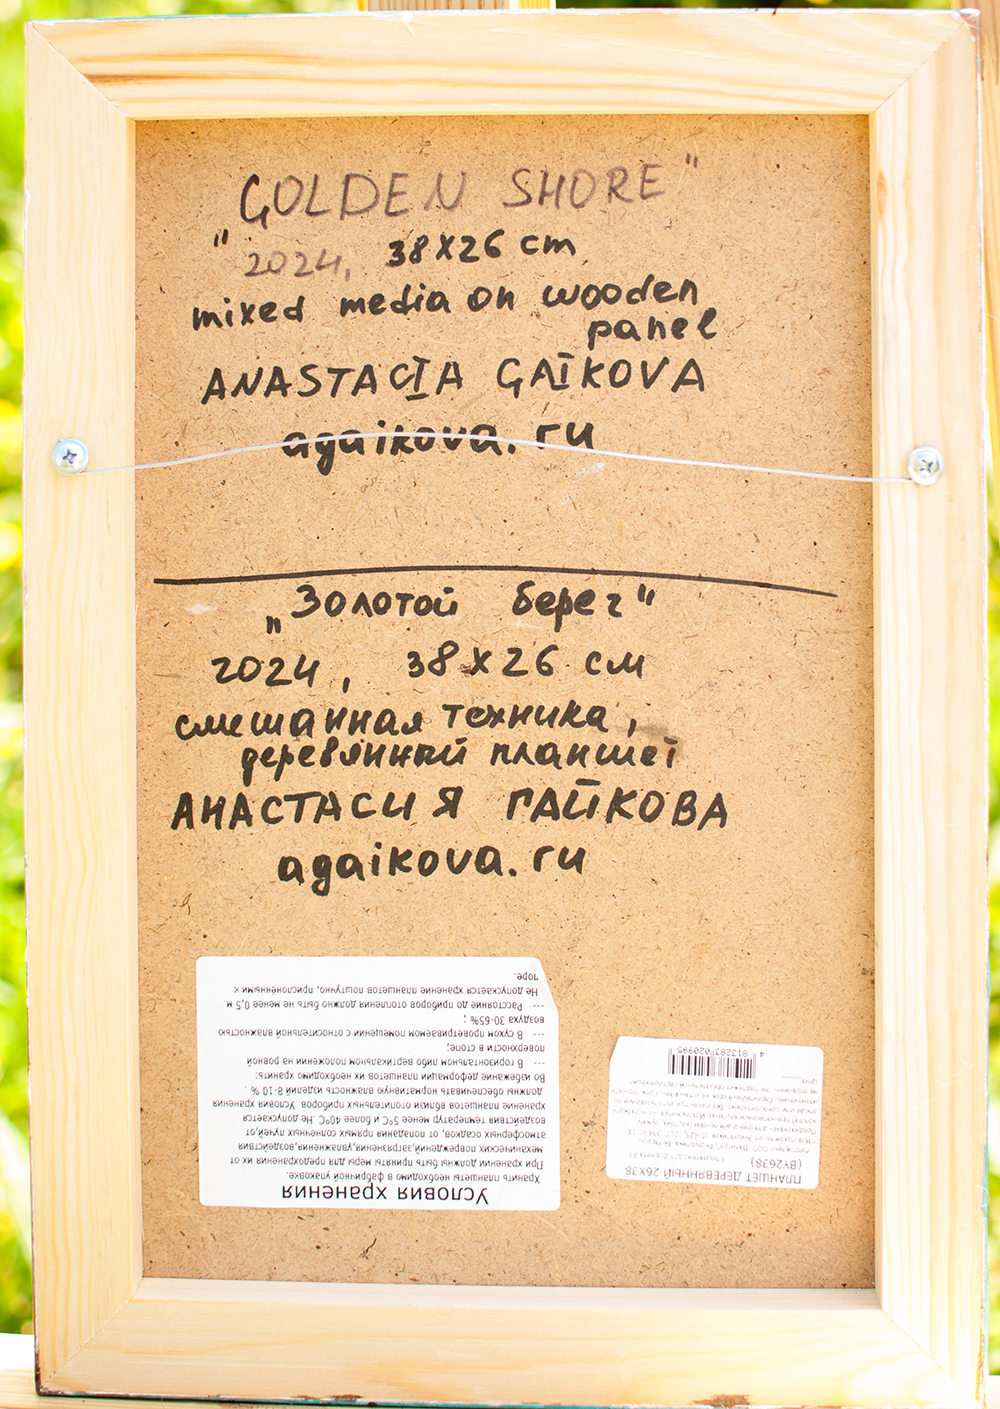 "GOLDEN SHORE"
2024, 38X26 cm
mixed media on wooden
panel
ANASTACIA GAIKOVA
agaikova.ru
„Золотой берег"
2024, 38X26 см
смешанная техника,
деревянный планшет
АНАСТАСИЯ ГАЙКОВА
agaikova.ru
Условия хранения
Хранить планшеты необходимо в фабричной упаковке.
При хранении должны быть приняты меры для предохранения их от
механических повреждений,загрязнения,увлажнения,воздействия
атмосферных осадков, от попадания прямых солнечных лучей,от
воздействия температур менее 5°C и более 40°C. Не допускается
хранение планшетов вблизи отопительных приборов. Условия хранения
должны обеспечивать нормативную влажность изделий 8-10 % .
Во избежание деформации планшетов их необходимо хранить:
--- В горизонтальном либо вертикальном положении на ровной
поверхности в стопе;
--- В сухом проветриваемом помещении с относительной влажностью
воздуха 30-65% ;
--- Расстояние до приборов отопления должно быть не менее 0,5 м.
Не допускается хранение планшетов поштучно, прислонёнными к
торе.
ПЛАНШЕТ ДЕРЕВЯННЫЙ 26X38
(BY2638)
4 813283 020995